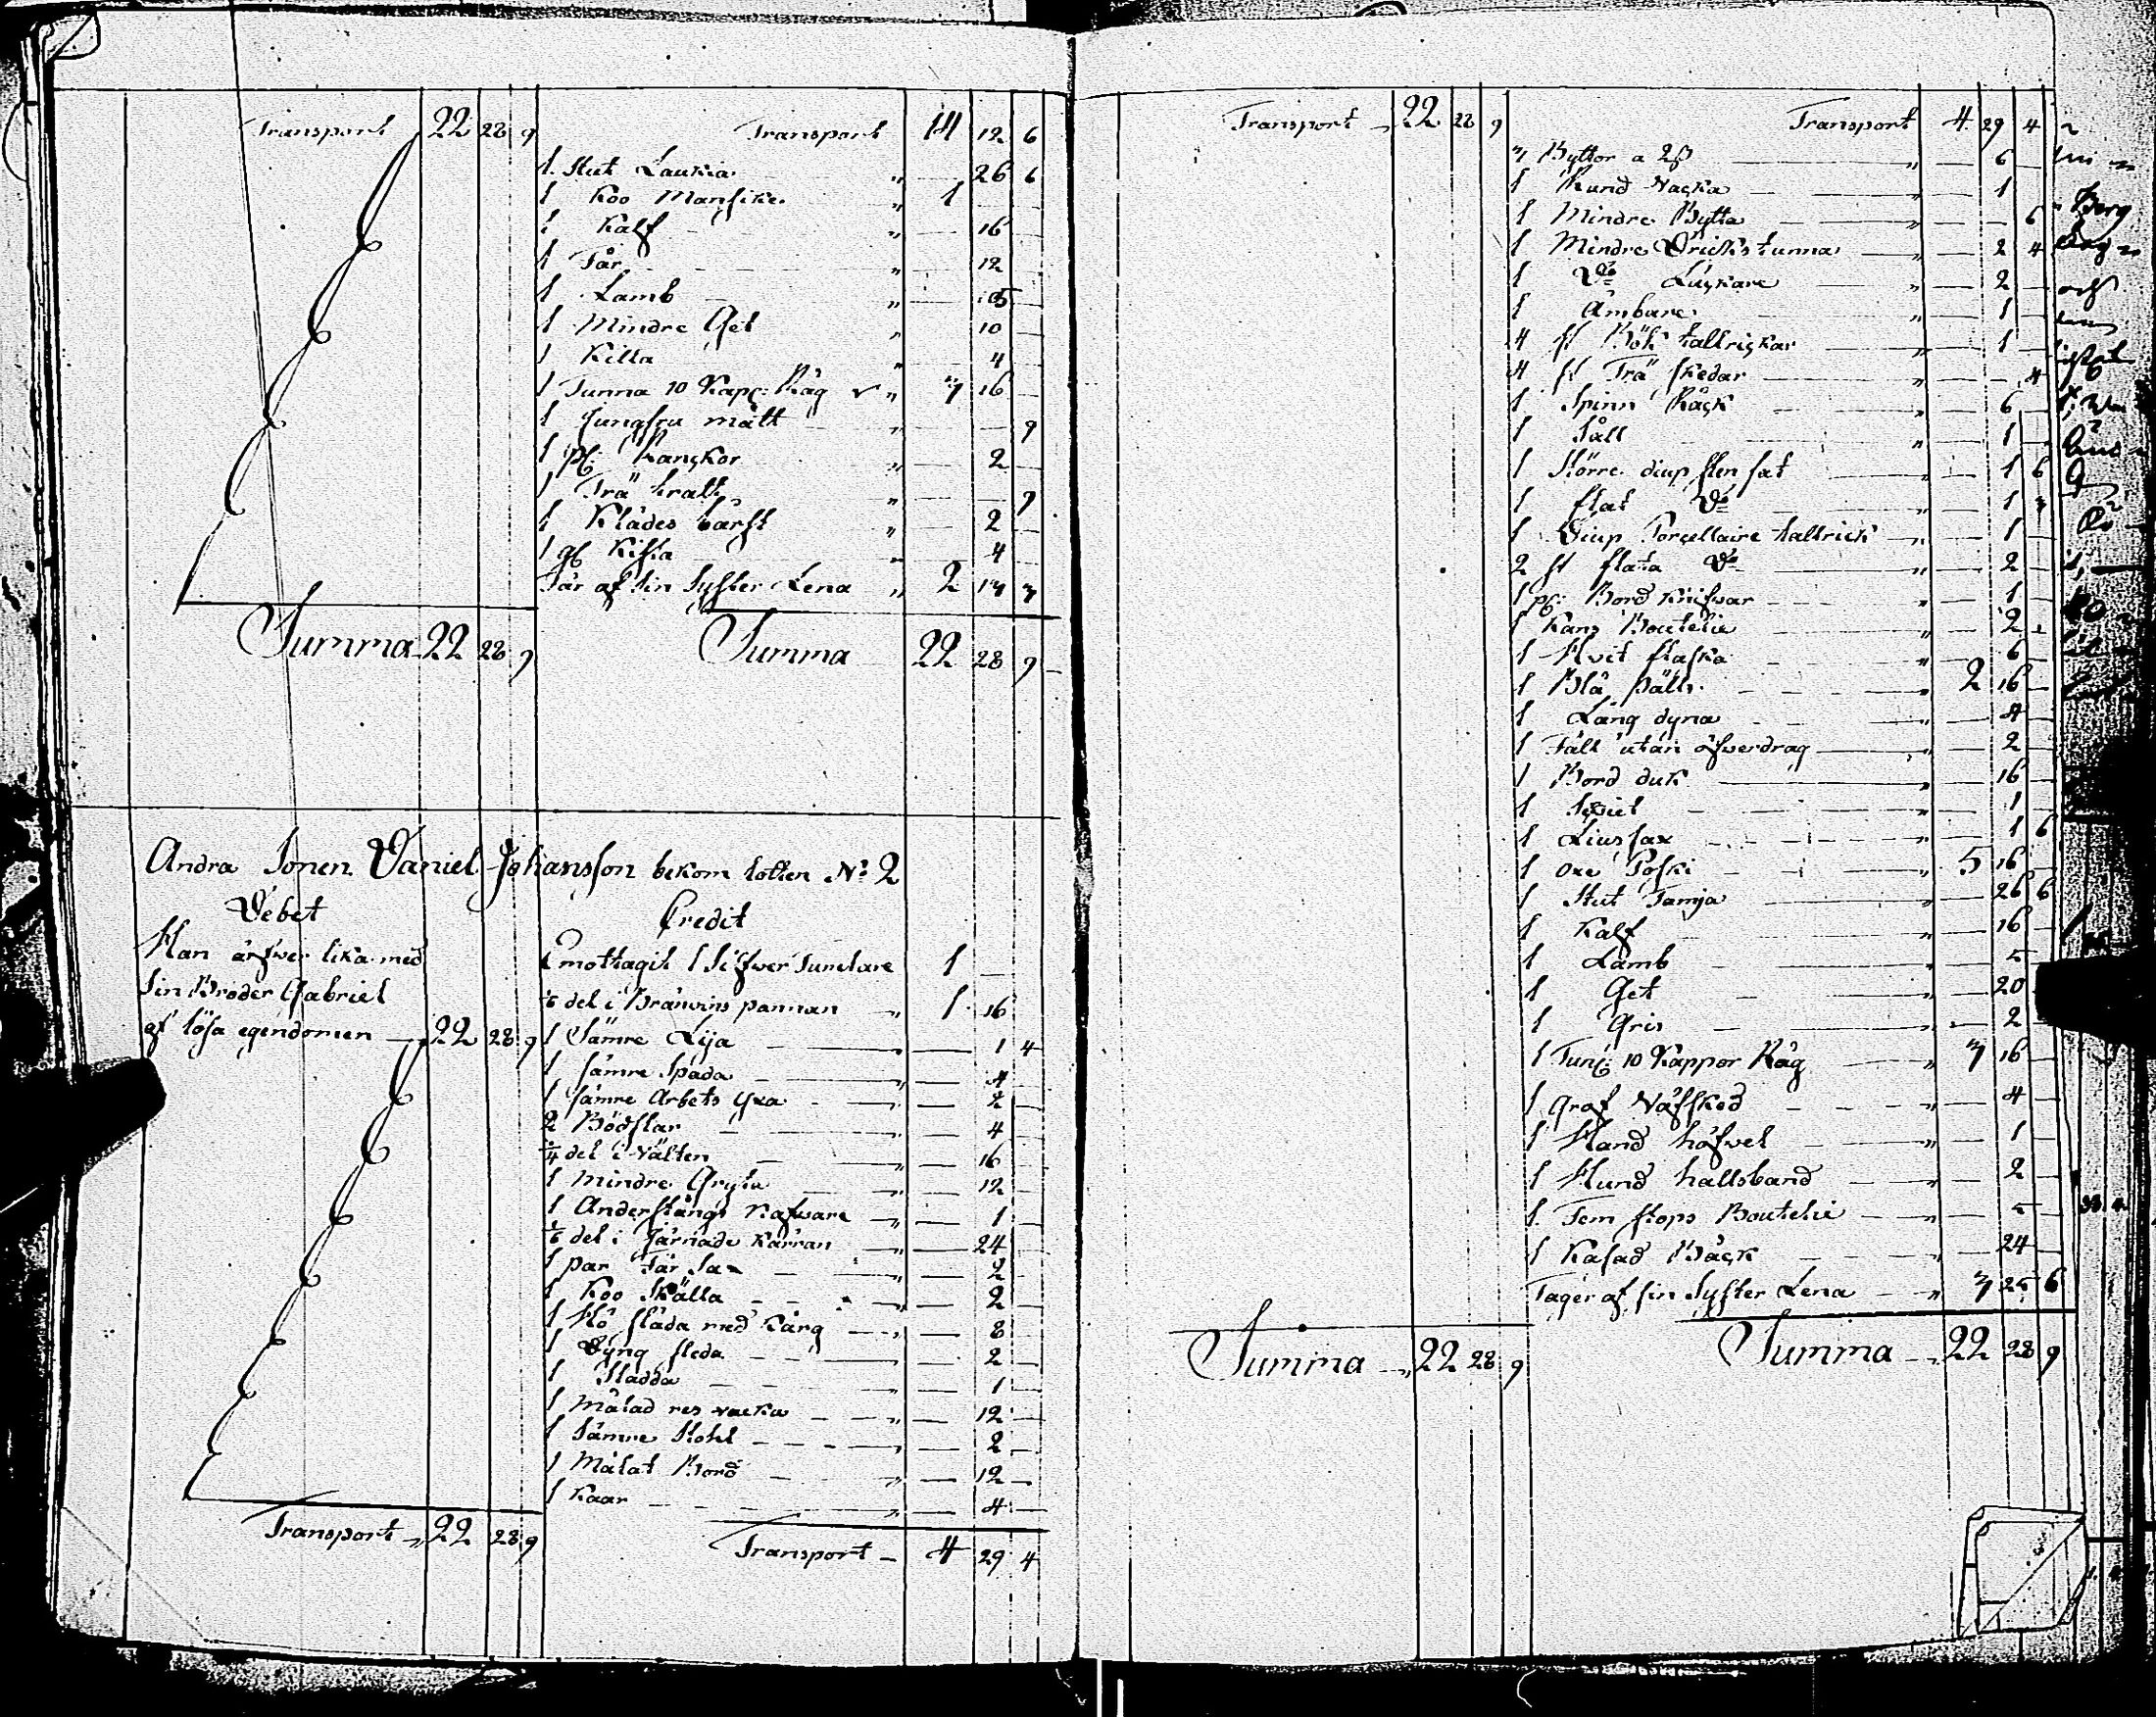 Transport 22 28 9
Transport 14 12 6
1 Stut Laukia " 26 6
1 Koo Mansike " 1
1 Kalf " 16
1 Får " 12
1 Lamb " 5
1 Mindre Get " 10
1 Killa " 4
1 Tunna 10 Kapp: Råg " 7 16
1 Jungfru mått " 9
1 p: Rangkor " 2
1 Trä tratt " 9
1 Klädes bårst " 2
1 Kista " 4
Får af Sin Syster Lena " 2 17
Summa 22 28 9
Summa 22 28 9
Andra Sonen Daniel Johansson bekom lotten No 2
Debet
Han ärfwer lika med
Sin Broder Gabriel
af lösa egendomen 22 28 9
Credit
Emottagit 1 Silfwer Tumlare 1
1/6 del i Bränvins pannan " 1 16
1 Sämre Lija " 1 4
1 Sämre Spada " 4
1 Sämre Arbets yxa " 2
2 Bödslar " 4
1/4 del i Välten " 16
1 Mindre Gryta " 12
1 Anderstångs Nafware " 1
1/6 del i Järnade Kärran 24
1 par Får Sax " 2
1 Koo Skälla " 2
1 Hö släda med Karg " 8
1 Dyng sleda " 2
1 Sladda " 1
1 Målad res vacka " 12
1 Sämre Stohl " 2
1 Målat Bord " 12
1 Kaar " 4
Transport 22 28 9
Transport 4 29 4
Transport 22 28 9
Transport 4 29 4
Byttor a 2ß " 6
1 Rund Vacka " 1
1 Mindre Bytta " 6
1 Mindre Dricks tunna " 2 4
1 Do " 2
1 Ämbare " 1
4 st Bök tallrickar " 1
4 st Trä skedar 4
1 Spinn Råck 6
1 Såll " 1
1 Större diup sten fat 1 6
1 flat Do " 1
1 Diup Porcellaire tallrick " 1
2 st flata Do " 2
1 p: Bord Knifwar " 1
1 Kans Boutelie " 2
1 Hvit flaska " 6
1 Blå Pälts " 2 16
1 Lång dyna " 4
1 Fäll utan öfwerdrag " 2
1 Bord duk " 16
1 " 1
1 Lius sax " 1 6
1 Oxe Poski " 5 16
1 Stut Tamja " 26 6
1 Kalf 16
1 Lamb " 5
1 Get " 20
1 Gris " 2
1 Tun: 10 Kappor Råg " 7 16
1 Graf Väfsked " 4
1 Hand höfwel " 1
1 Hund hallsband " 2
1 Fem stops Boutelie " 5
1 Kasad Bäck " 24
Tager af sin Syster Lena " 7 25 6
Summa 22 28 9
Summa 22 28 9
Berg